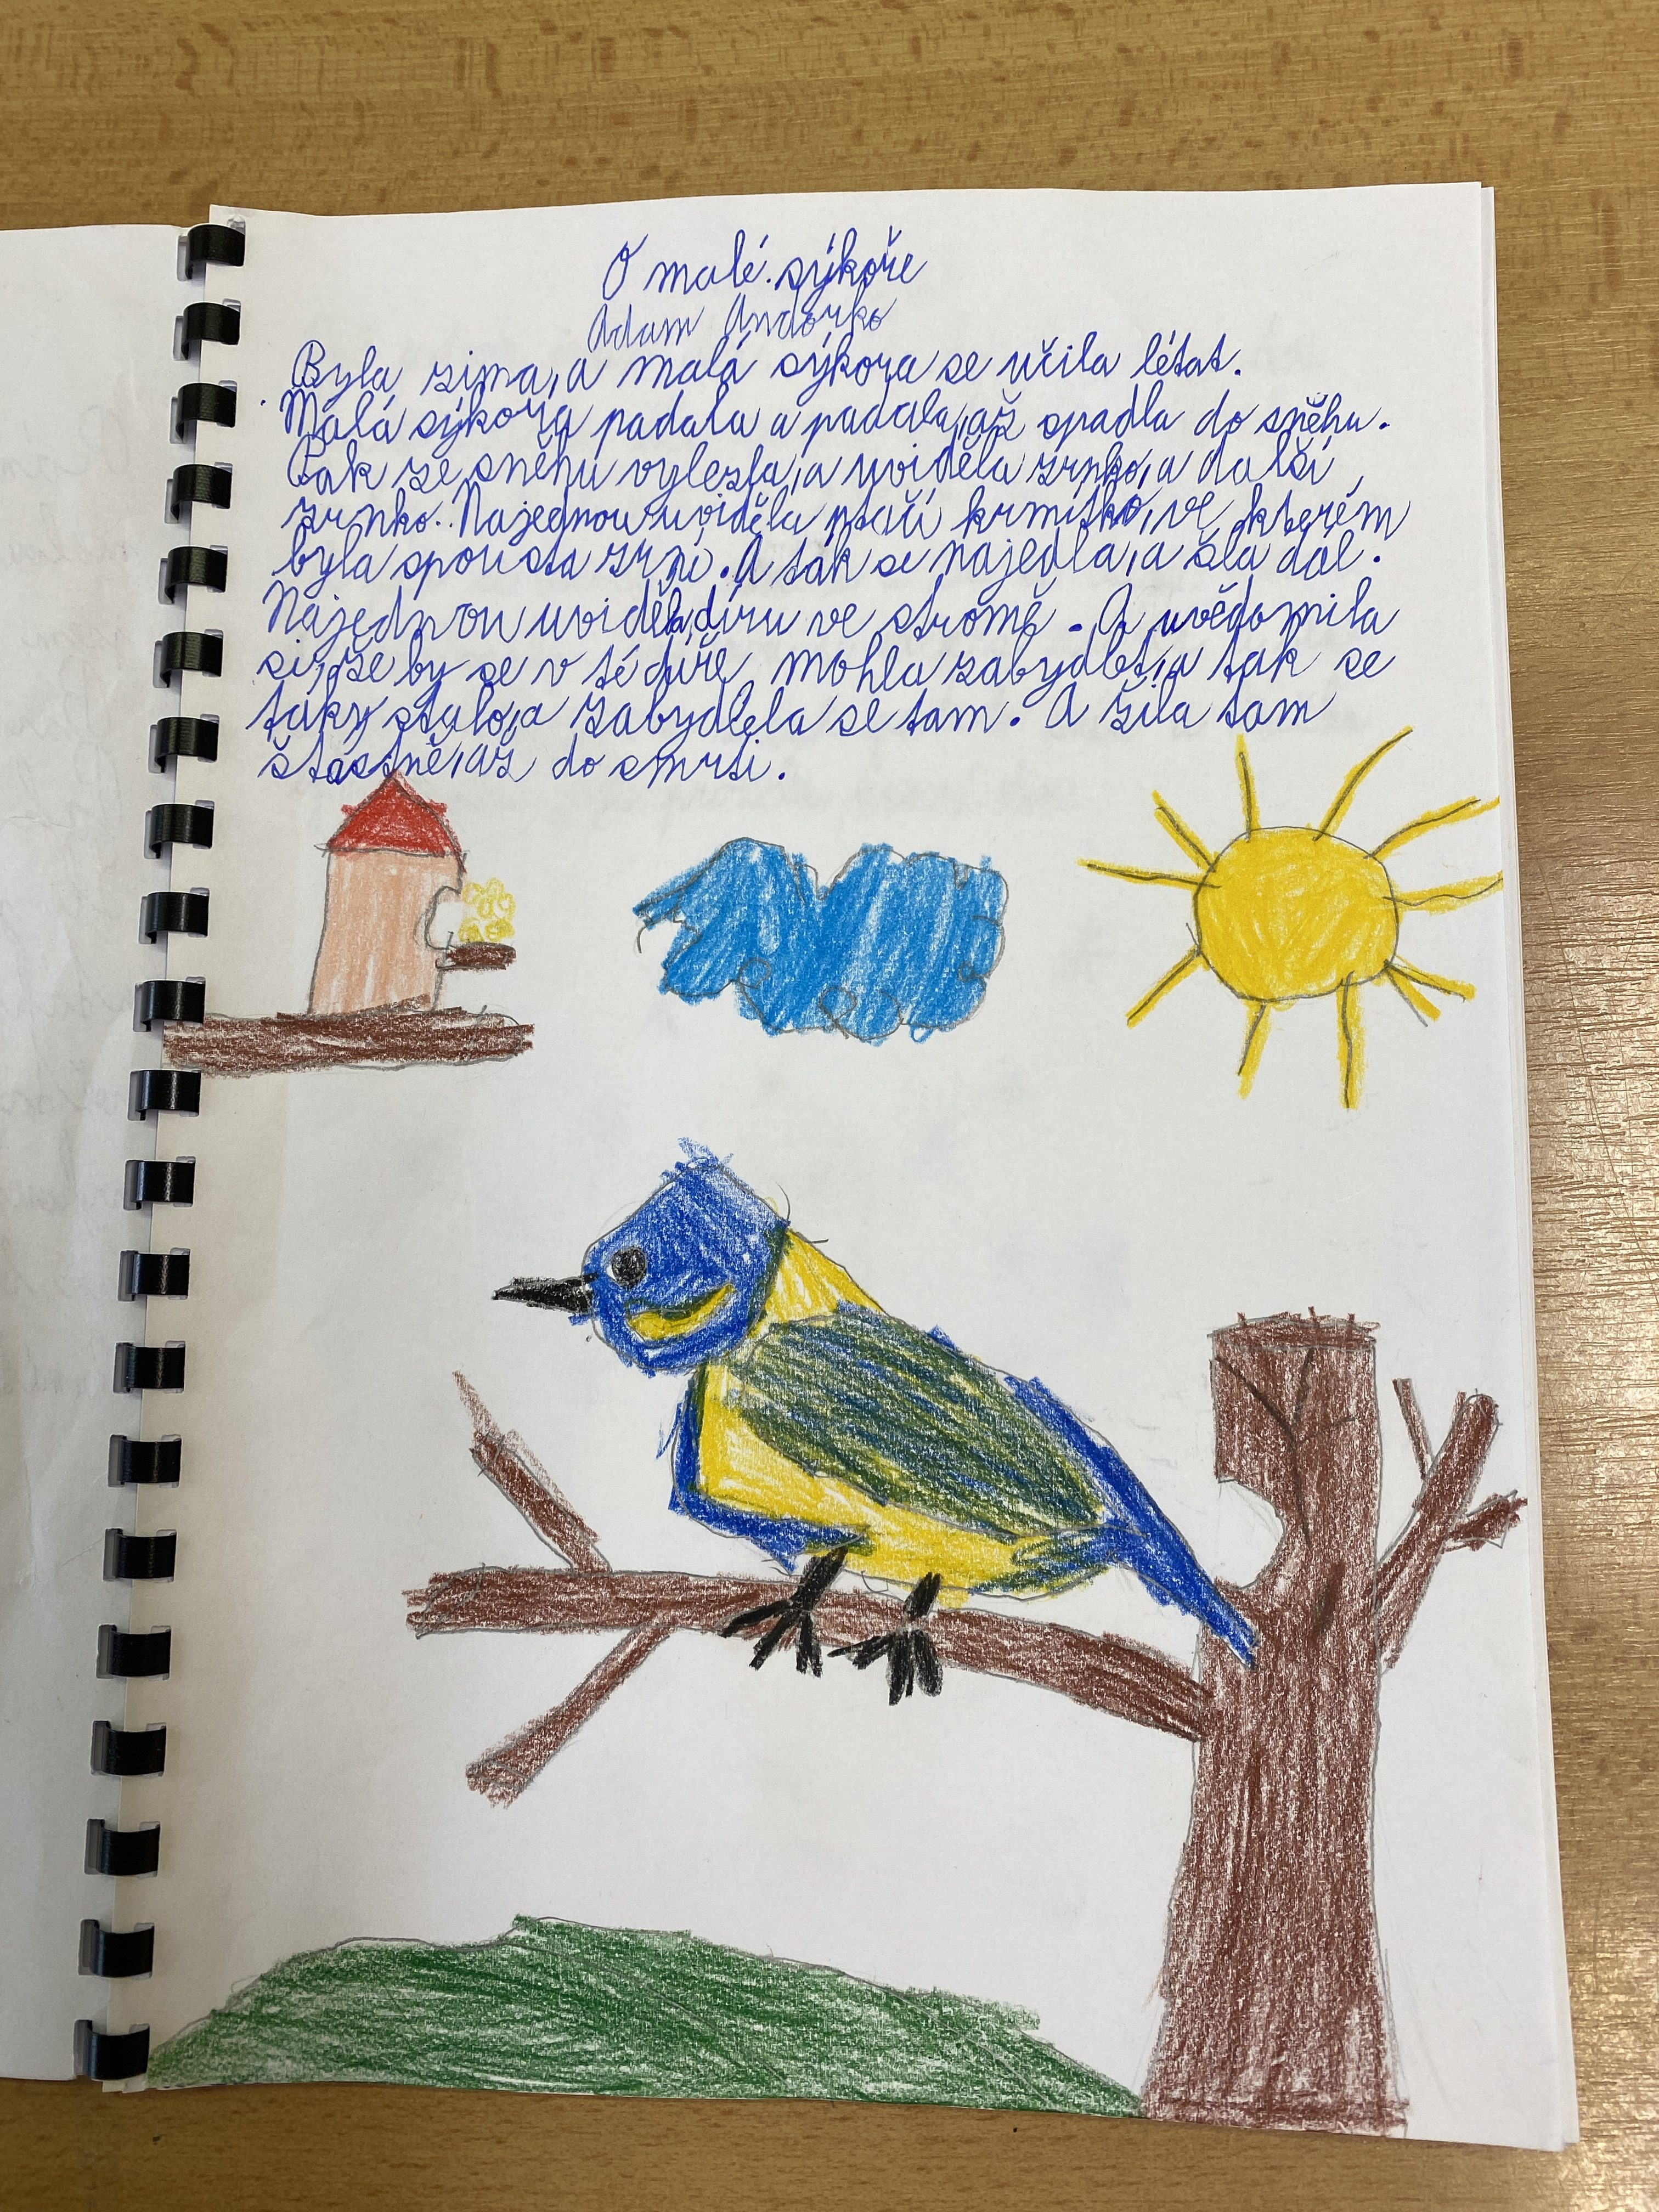 O malé sýkoře
Adam Andorko
Byla zima, a malá sýkora se učila létat.
Malá sýkora padala a padala, až spadla do sněhu.
Pak ze sněhu vylezla, a uviděla zrnko, a další
zrnko. Najednou uviděla ptačí krmítko, ve kterém
byla spousta zrní. A tak se najedla, a šla dál.
Najednou uviděla díru ve stromě. A uvědomila
si, že by se v té díře mohla zabydlet, a tak se
taky stalo, a zabydlela se tam. A žila tam
šťastně, až do smrti.